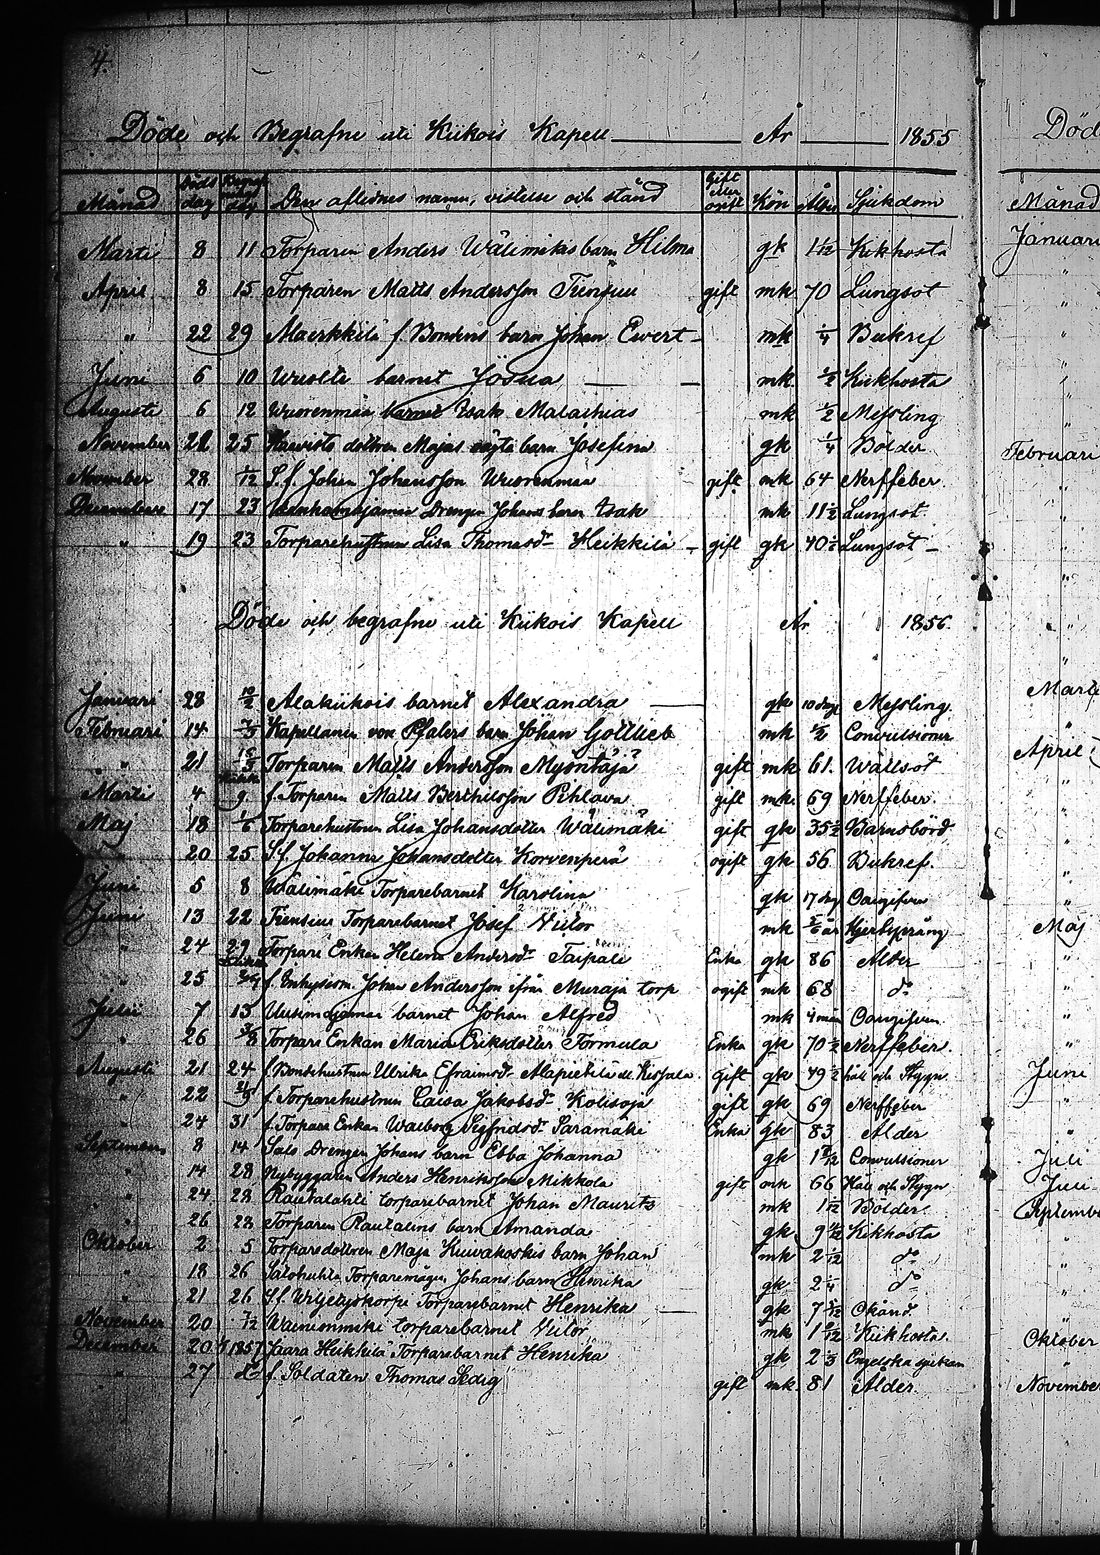 4.
Döde och Begrafne uti Kiikois Kapell År 1855
Månad Döds dag Begraf dag Den aflidnes namn, vistelse och stånd Gift eller ogift Kön Ålder Sjukdom
Marti 8 11 Torparen Anders Wälimäkis barn Hilma gk 1 1/12 Kikhosta
April 8 15 Torparen Matts Andersson gift mk 70 Lungsot
" 22 29 f. Bondens barn Johan Ewert mk 1/4 Bukref
Juni 6 10 barnet Josua mk 1/2 Kikhosta
Augusti 6 12 Wuorenmaa barnet Isak Malachias mk 1/2 Messling
November 25 dottren Majas barn Josefina gk 1/4 Bölder
November 28 1/12 S.f. Johan Johansson Wuorenmaa gift mk 64 Nerffeber
December 17 23 Drengen Johans barn Isak mk 11 1/2 Lungsot
" 19 23 Torparehustrun Lisa Thomasd. Heikkilä gift gk 40 1/2 Lungsot
Döde och begrafne uti Kiikois Kapell År 1856.
Januari 28 10/2 Alakiikois barnet Alexandra gk 10 dgr Messling
Februari 14 7/3 Kapellanen von Pfalers barn Johan Gottlieb mk 1/2 Convulsioner
" 21 Torparen Matts Andersson Myöntäjä gift mk 61. Wattsot
Marti 4 9 f. Torparen Matts Berthilsson Pihlava gift mk 69 Nerffeber.
Maj 18 1/6 Torparehustrun Lisa Johansdotter Wälimäki gift gk 35 1/2 Barnsbörd
" 20 25 S.f. Johanna Johansdotter Korvenperä ogift gk 56 Bukref.
Juni 5 8 Wälimäki Torparebarnet Karolina gk 17 dgr Oangifven
Juni 13 22 Torparebarnet Josef Victor mk
" 24 29 Torpare Enkan Helena Andersd. Taipale Enka gk 86 Ålder
" 25 f. Inhysesm. Johan Andersson ifrån Muraja torp ogift mk 68 do
Julii 7 13 barnet Johan Alfred mk 4 mån Oangifven
" 26 3/8 Torpare Enkan Maria Eriksdotter Tormula Enka gk 70 1/2 Nerffeber.
Augusti 21 24 f. Bondehustrun Ulrika Efraimsd. gift gk 49 1/2 håll och Stygn
" 22 f. Torparehustrun Caisa Jakobsd. Kolisoja gift gk 69 Nerffeber
" 24 31 f. Torpare Enkan Walborg Sigfridsd. Saramäki Enka gk 83 Ålder
September 8 14 Sals Drengen Johans barn Ebba Johanna gk Convulsioner
" 14 28 Nybyggaren Anders Henriksson Mikkola gift mk 66 Håll och Stygn
" 24 28 Rautalahti torparebarnet Johan Maurits mk 1 1/12 Bölder
" 26 28 Torparen Rautalins barn Amanda gk 9 1/2 Kikhosta
Oktober 2 5 Torparedottren Maja Kuuvakoskis barn Johan mk 2 1/12 do
" 18 26 Salohuhta Torparemågen Johans barn Henrika gk 2 1/4 do
" 21 26 S.f. Torparebarnet Henrika gk Okänd.
November 20 7/12 torparebarnet Victor mk Kikhosta
December 20 1857 Jaara Heikkilä Torparebarnet Henrika gk 2 1/3 Engelska sjukan
" 27 do f. Soldaten Thomas Sedig gift mk 81 Ålder
Död
Månad
Januari
Februari
Marti
April
Maj
Juni
Juli
Juli
September
Oktober
November